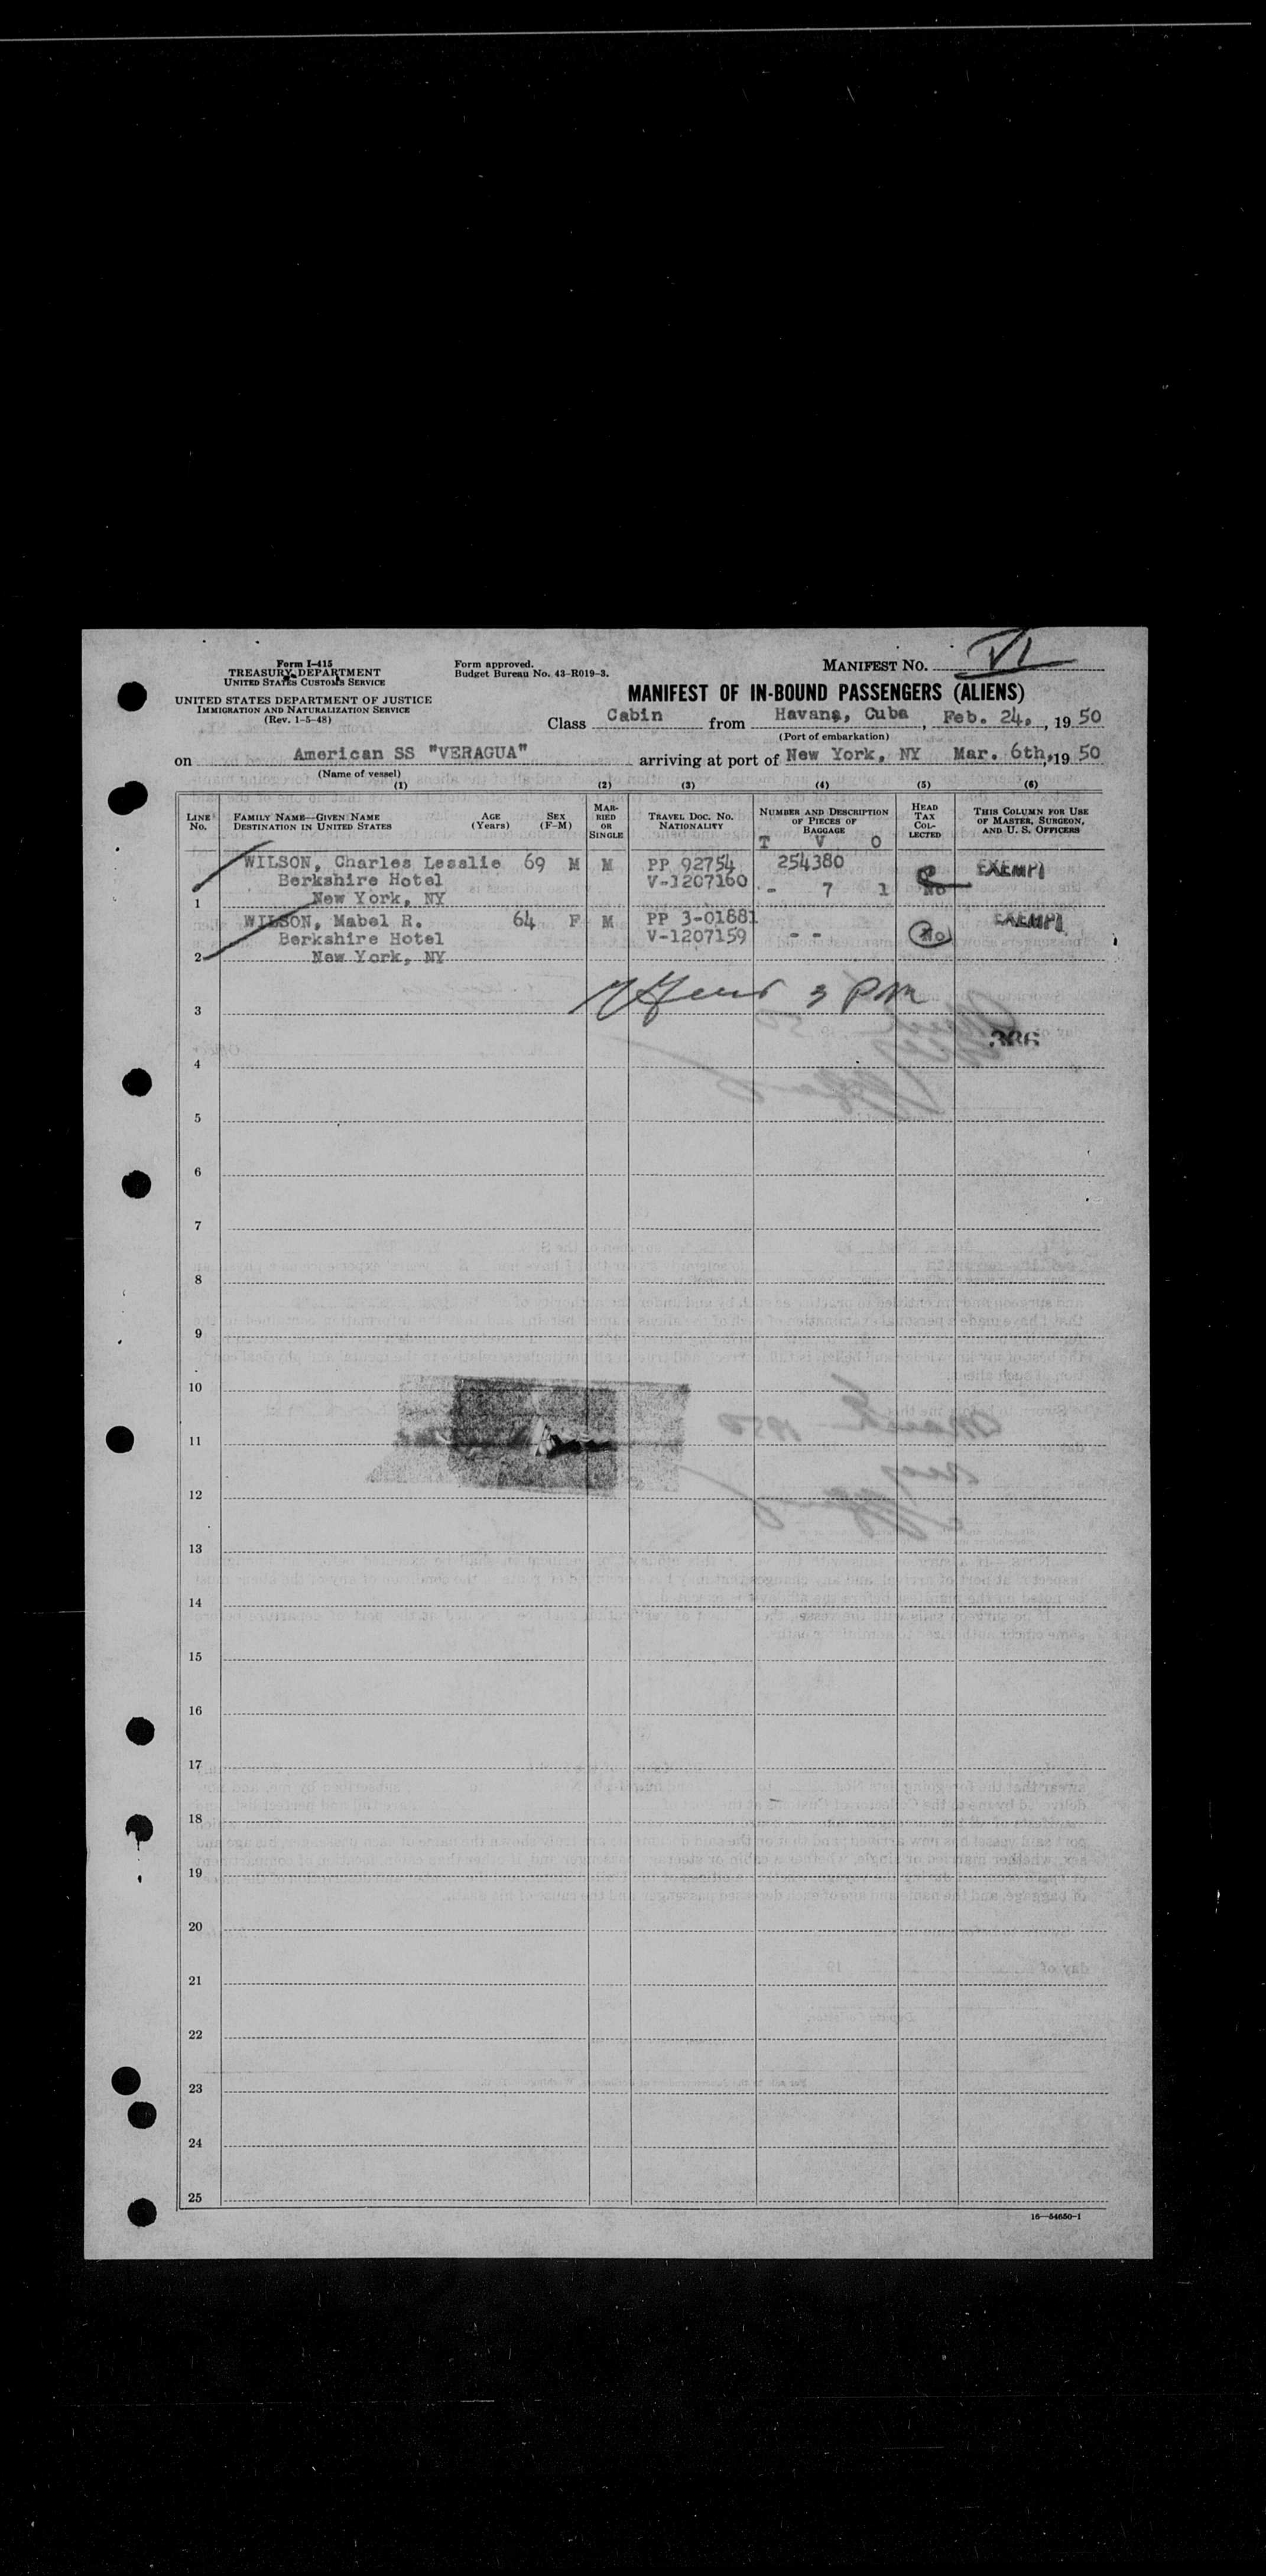 Form I-415
TREASURY DEPARTMENT
UNITED STATES CUSTOMS SERVICE
UNITED STATES DEPARTMENT OF JUSTICE
IMMIGRATION AND NATURALIZATION SERVICE
(Rev. 1-5-48)
Form approved.
Budget Bureau No. 43-R019-3.
MANIFEST NO. VI
MANIFEST OF IN-BOUND PASSENGERS (ALIENS)
Class Cabin from Havana, Cuba, Feb. 24., 1950
(Port of embarkation)
on American SS "VERAGUA" arriving at port of New York, NY Mar. 6th, 1950
(Name of vessel)
(1) (2) (3) (4) (5) (6)
LINE No. FAMILY NAME—GIVEN NAME DESTINATION IN UNITED STATES AGE (Years) SEX (F-M) MARRIED OR SINGLE TRAVEL DOC. NO. NATIONALITY NUMBER AND DESCRIPTION OF PIECES OF BAGGAGE HEAD TAX COLLECTED THIS COLUMN FOR USE OF MASTER, SURGEON, AND U. S. OFFICERS
T V O
WILSON, Charles Lesslie 69 M M PP 92754 254380 EXEMPT
Berkshire Hotel V-1207160 - 7 1 No
1 New York, NY
WILSON, Mabel R. 64 F M PP 3-01881 EXEMPT
Berkshire Hotel V-1207159 - - No
2 New York, NY
3 3 PM
386
4
5
6
7
8
9
10
11
12
13
14
15
16
17
18
19
20
21
22
23
24
25
16—54650-1